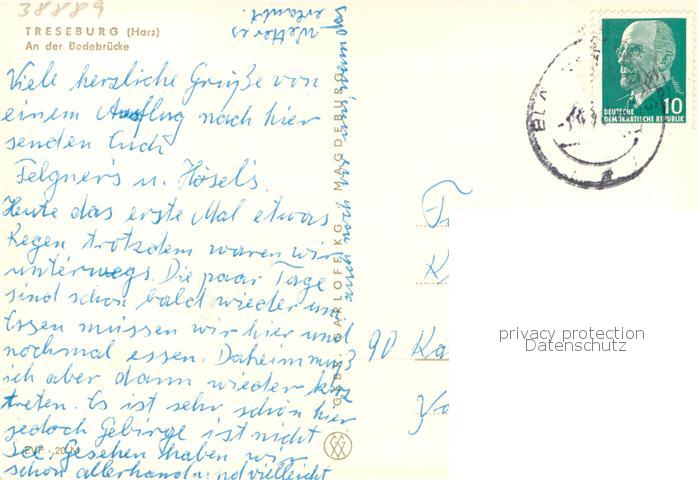 38889
TRESEBURG (Harz)
An der Bodebrücke
Viele herzliche Grüße von
einem Ausflug nach hier
senden Euch
Felgner's u. Hösel's.
Heute das erste Mal etwas
Regen trotzdem waren wir
unterwegs. Die paar Tage
sind schon bald wieder um
Essen müssen wir hier und
nochmal essen. Daheim muß
ich aber dann wieder kurz
treten. Es ist sehr schön hier
jedoch Gebirge ist nicht
See. Gesehen haben wir
schon allerhand und vielleicht
auch noch was
Wetter es
erlaubt.
EVP -,20 M
GEBR. GARLOFF KG / MAGDEBURG
10
DEUTSCHE
DEMOKRATISCHE REPUBLIK
BLA
F
K
90 Ka
privacy protection
Datenschutz